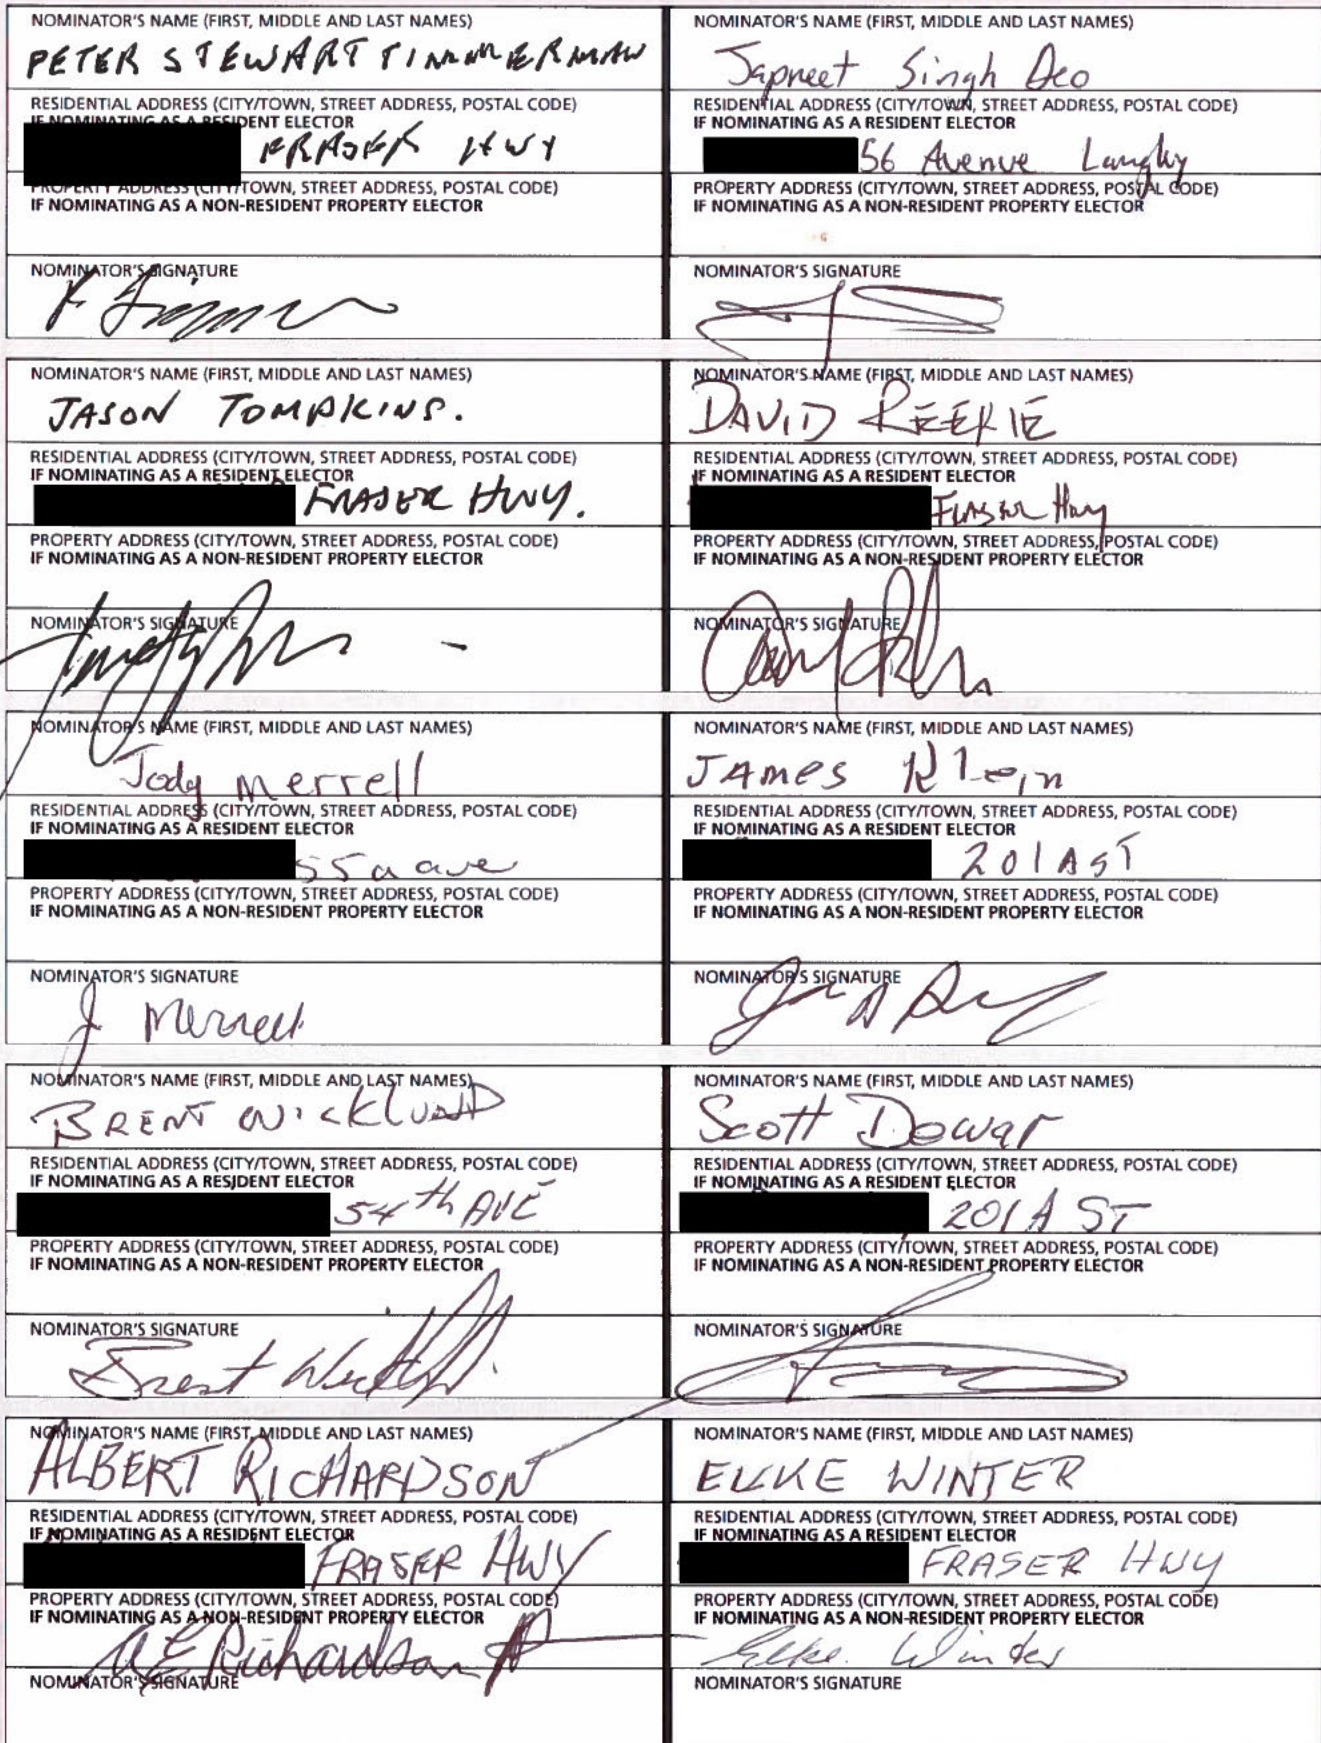 NOMINATOR'S NAME (FIRST, MIDDLE AND LAST NAMES)
PETER STEWART TIMMERMAN
RESIDENTIAL ADDRESS (CITY/TOWN, STREET ADDRESS, POSTAL CODE)
IF NOMINATING AS A RESIDENT ELECTOR
FRASER HWY
PROPERTY ADDRESS (CITY/TOWN, STREET ADDRESS, POSTAL CODE)
IF NOMINATING AS A NON-RESIDENT PROPERTY ELECTOR
NOMINATOR'S SIGNATURE
NOMINATOR'S NAME (FIRST, MIDDLE AND LAST NAMES)
Japreet Singh Deo
RESIDENTIAL ADDRESS (CITY/TOWN, STREET ADDRESS, POSTAL CODE)
IF NOMINATING AS A RESIDENT ELECTOR
56 Avenue Langley
PROPERTY ADDRESS (CITY/TOWN, STREET ADDRESS, POSTAL CODE)
IF NOMINATING AS A NON-RESIDENT PROPERTY ELECTOR
NOMINATOR'S SIGNATURE
NOMINATOR'S NAME (FIRST, MIDDLE AND LAST NAMES)
JASON TOMPKINS.
RESIDENTIAL ADDRESS (CITY/TOWN, STREET ADDRESS, POSTAL CODE)
IF NOMINATING AS A RESIDENT ELECTOR
FRASER HWY.
PROPERTY ADDRESS (CITY/TOWN, STREET ADDRESS, POSTAL CODE)
IF NOMINATING AS A NON-RESIDENT PROPERTY ELECTOR
NOMINATOR'S SIGNATURE
NOMINATOR'S NAME (FIRST, MIDDLE AND LAST NAMES)
DAVID REEKIE
RESIDENTIAL ADDRESS (CITY/TOWN, STREET ADDRESS, POSTAL CODE)
IF NOMINATING AS A RESIDENT ELECTOR
FRASER Hwy
PROPERTY ADDRESS (CITY/TOWN, STREET ADDRESS, POSTAL CODE)
IF NOMINATING AS A NON-RESIDENT PROPERTY ELECTOR
NOMINATOR'S SIGNATURE
NOMINATOR'S NAME (FIRST, MIDDLE AND LAST NAMES)
Jody Merrell
RESIDENTIAL ADDRESS (CITY/TOWN, STREET ADDRESS, POSTAL CODE)
IF NOMINATING AS A RESIDENT ELECTOR
55a ave
PROPERTY ADDRESS (CITY/TOWN, STREET ADDRESS, POSTAL CODE)
IF NOMINATING AS A NON-RESIDENT PROPERTY ELECTOR
NOMINATOR'S SIGNATURE
J Merrell
NOMINATOR'S NAME (FIRST, MIDDLE AND LAST NAMES)
JAmes Klein
RESIDENTIAL ADDRESS (CITY/TOWN, STREET ADDRESS, POSTAL CODE)
IF NOMINATING AS A RESIDENT ELECTOR
201A ST
PROPERTY ADDRESS (CITY/TOWN, STREET ADDRESS, POSTAL CODE)
IF NOMINATING AS A NON-RESIDENT PROPERTY ELECTOR
NOMINATOR'S SIGNATURE
NOMINATOR'S NAME (FIRST, MIDDLE AND LAST NAMES)
BRENT
RESIDENTIAL ADDRESS (CITY/TOWN, STREET ADDRESS, POSTAL CODE)
IF NOMINATING AS A RESIDENT ELECTOR
54th AVE
PROPERTY ADDRESS (CITY/TOWN, STREET ADDRESS, POSTAL CODE)
IF NOMINATING AS A NON-RESIDENT PROPERTY ELECTOR
NOMINATOR'S SIGNATURE
Brent
NOMINATOR'S NAME (FIRST, MIDDLE AND LAST NAMES)
Scott Dewar
RESIDENTIAL ADDRESS (CITY/TOWN, STREET ADDRESS, POSTAL CODE)
IF NOMINATING AS A RESIDENT ELECTOR
201A ST
PROPERTY ADDRESS (CITY/TOWN, STREET ADDRESS, POSTAL CODE)
IF NOMINATING AS A NON-RESIDENT PROPERTY ELECTOR
NOMINATOR'S SIGNATURE
NOMINATOR'S NAME (FIRST, MIDDLE AND LAST NAMES)
ALBERT RICHARDSON
RESIDENTIAL ADDRESS (CITY/TOWN, STREET ADDRESS, POSTAL CODE)
IF NOMINATING AS A RESIDENT ELECTOR
FRASER HWY
PROPERTY ADDRESS (CITY/TOWN, STREET ADDRESS, POSTAL CODE)
IF NOMINATING AS A NON-RESIDENT PROPERTY ELECTOR
AE Richardson
NOMINATOR'S SIGNATURE
NOMINATOR'S NAME (FIRST, MIDDLE AND LAST NAMES)
ELKE WINTER
RESIDENTIAL ADDRESS (CITY/TOWN, STREET ADDRESS, POSTAL CODE)
IF NOMINATING AS A RESIDENT ELECTOR
FRASER HWY
PROPERTY ADDRESS (CITY/TOWN, STREET ADDRESS, POSTAL CODE)
IF NOMINATING AS A NON-RESIDENT PROPERTY ELECTOR
Elke Winter
NOMINATOR'S SIGNATURE